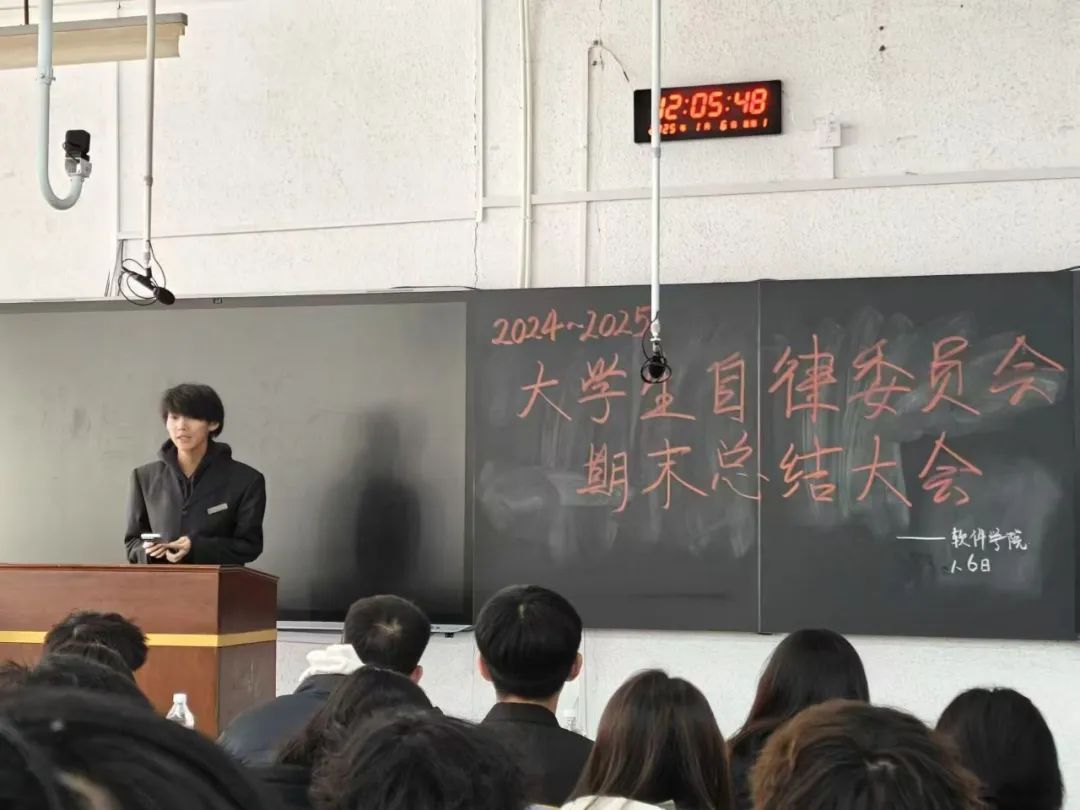 12:05:48
2025年 1月 6日 星期1
2024~2025
大学生自律委员会
期末总结大会
——软件学院
1.6日